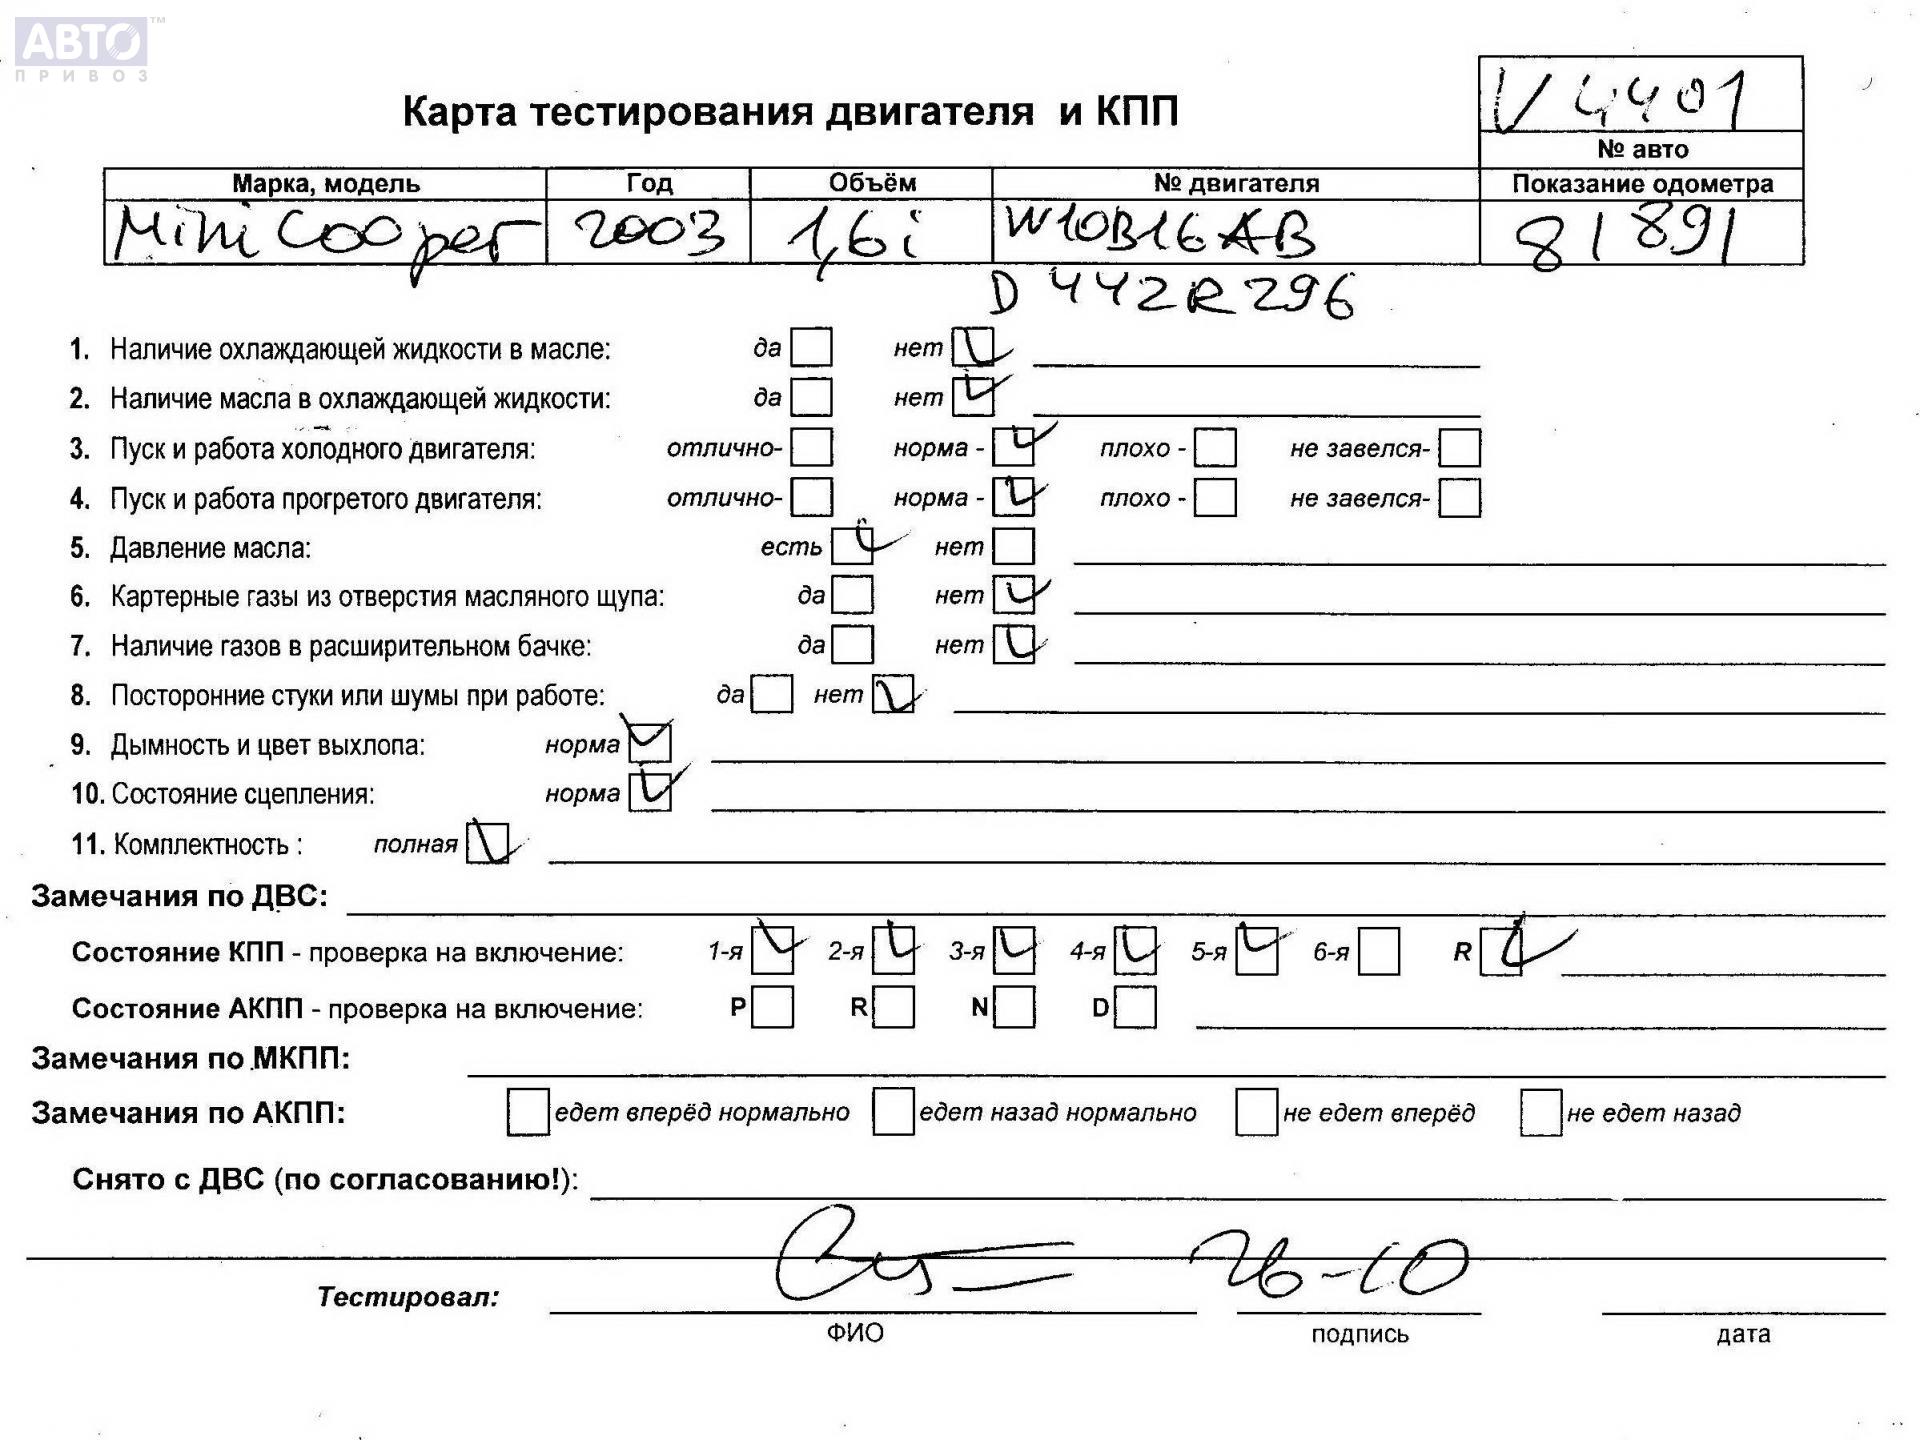 АВТО™
ПРИВОЗ
Карта тестирования двигателя и КПП
V4401
№ авто
Марка, модель Год Объём № двигателя Показание одометра
Mini Cooper 2003 1,6i W10B16AB 81891
D442R296
1. Наличие охлаждающей жидкости в масле: да нет
2. Наличие масла в охлаждающей жидкости: да нет
3. Пуск и работа холодного двигателя: отлично- норма - плохо - не завелся-
4. Пуск и работа прогретого двигателя: отлично- норма - плохо - не завелся-
5. Давление масла: есть нет
6. Картерные газы из отверстия масляного щупа: да нет
7. Наличие газов в расширительном бачке: да нет
8. Посторонние стуки или шумы при работе: да нет
9. Дымность и цвет выхлопа: норма
10. Состояние сцепления: норма
11. Комплектность : полная
Замечания по ДВС:
Состояние КПП - проверка на включение: 1-я 2-я 3-я 4-я 5-я 6-я R
Состояние АКПП - проверка на включение: P R N D
Замечания по МКПП:
Замечания по АКПП: едет вперёд нормально едет назад нормально не едет вперёд не едет назад
Снято с ДВС (по согласованию!):
26-10
Тестировал:
ФИО подпись дата